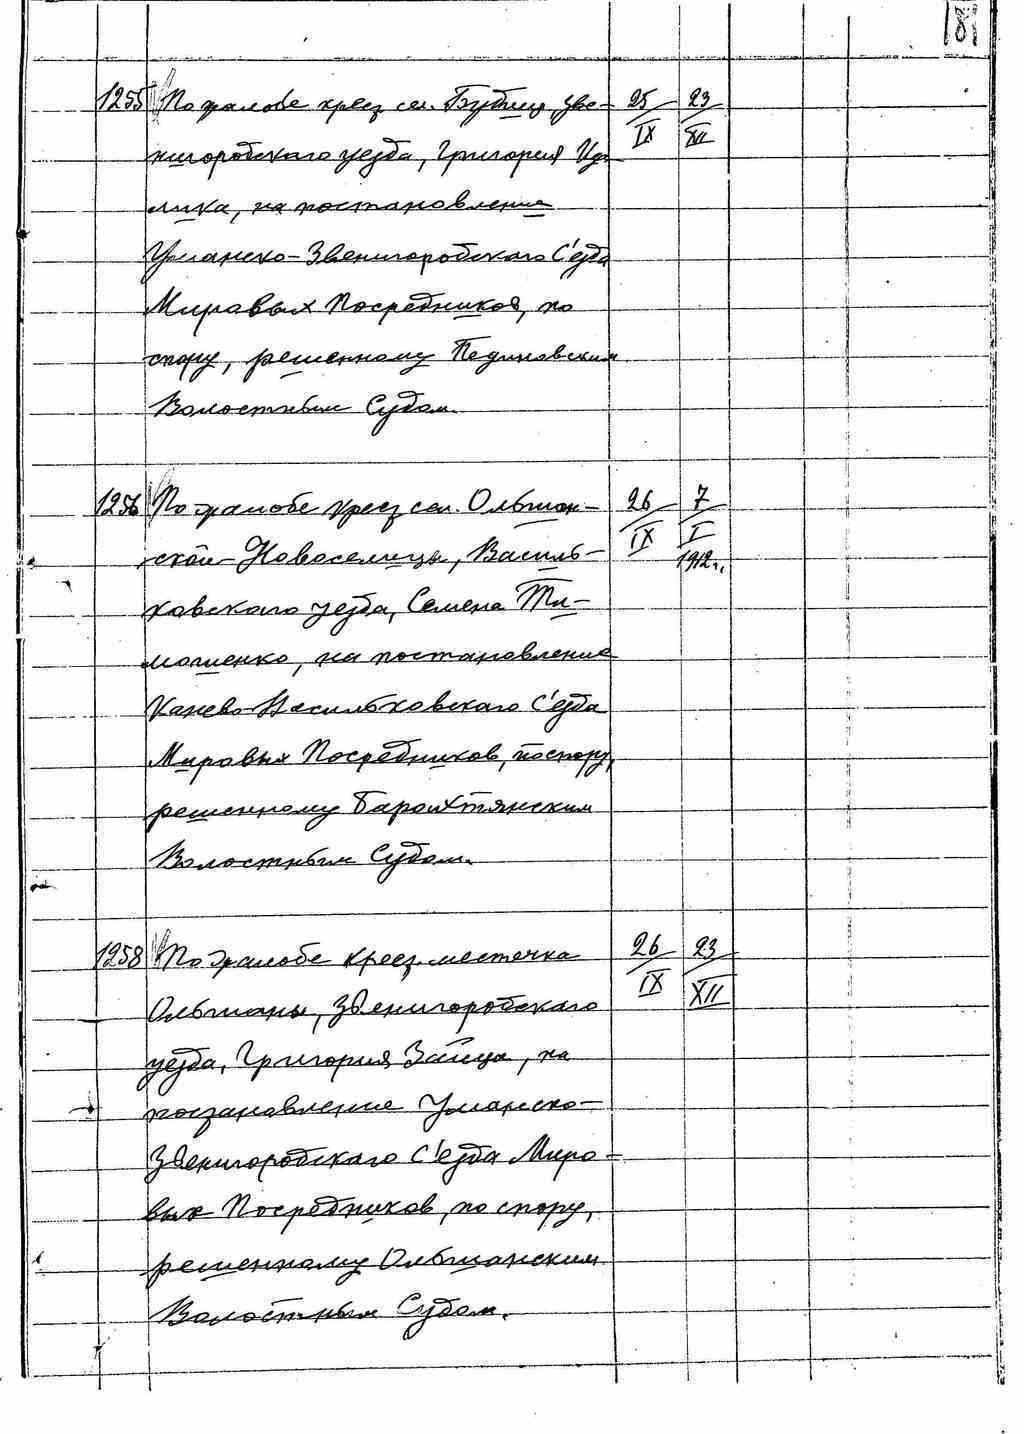 181
1255 По жалобе крес. сел. Бубнец, Зве- 25/IX 23/XII
нигородского уезда, Григория
на постановление
Уманско-Звенигородского С'езда
Мировых Посредников, по
спору, решенному Пединовским
Волостным Судом.
1256 По жалобе крес. сел. Ольшан- 26/IX 7/I 1912г.
ской-Новоселицы, Василь-
ковского уезда, Семена Ти-
мошенко, на постановление
Канево-Васильковского С'езда
Мировых Посредников, по спору,
решенному Барахтянским
Волостным Судом.
1258 По жалобе крес. местечка 26/IX 23/XII
Ольшаны, Звенигородского
уезда, Григория Зайца, на
постановление Уманско-
Звенигородского С'езда Миро-
вых Посредников, по спору,
решенному Ольшанским
Волостным Судом.